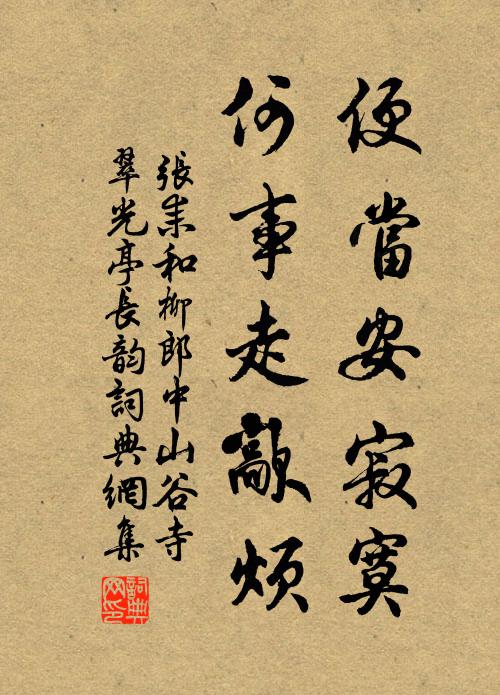 便當安寂寞
何事走歊煩
張耒和柳郎中山谷寺
翠光亭長韵詞典網集
詞典
网印